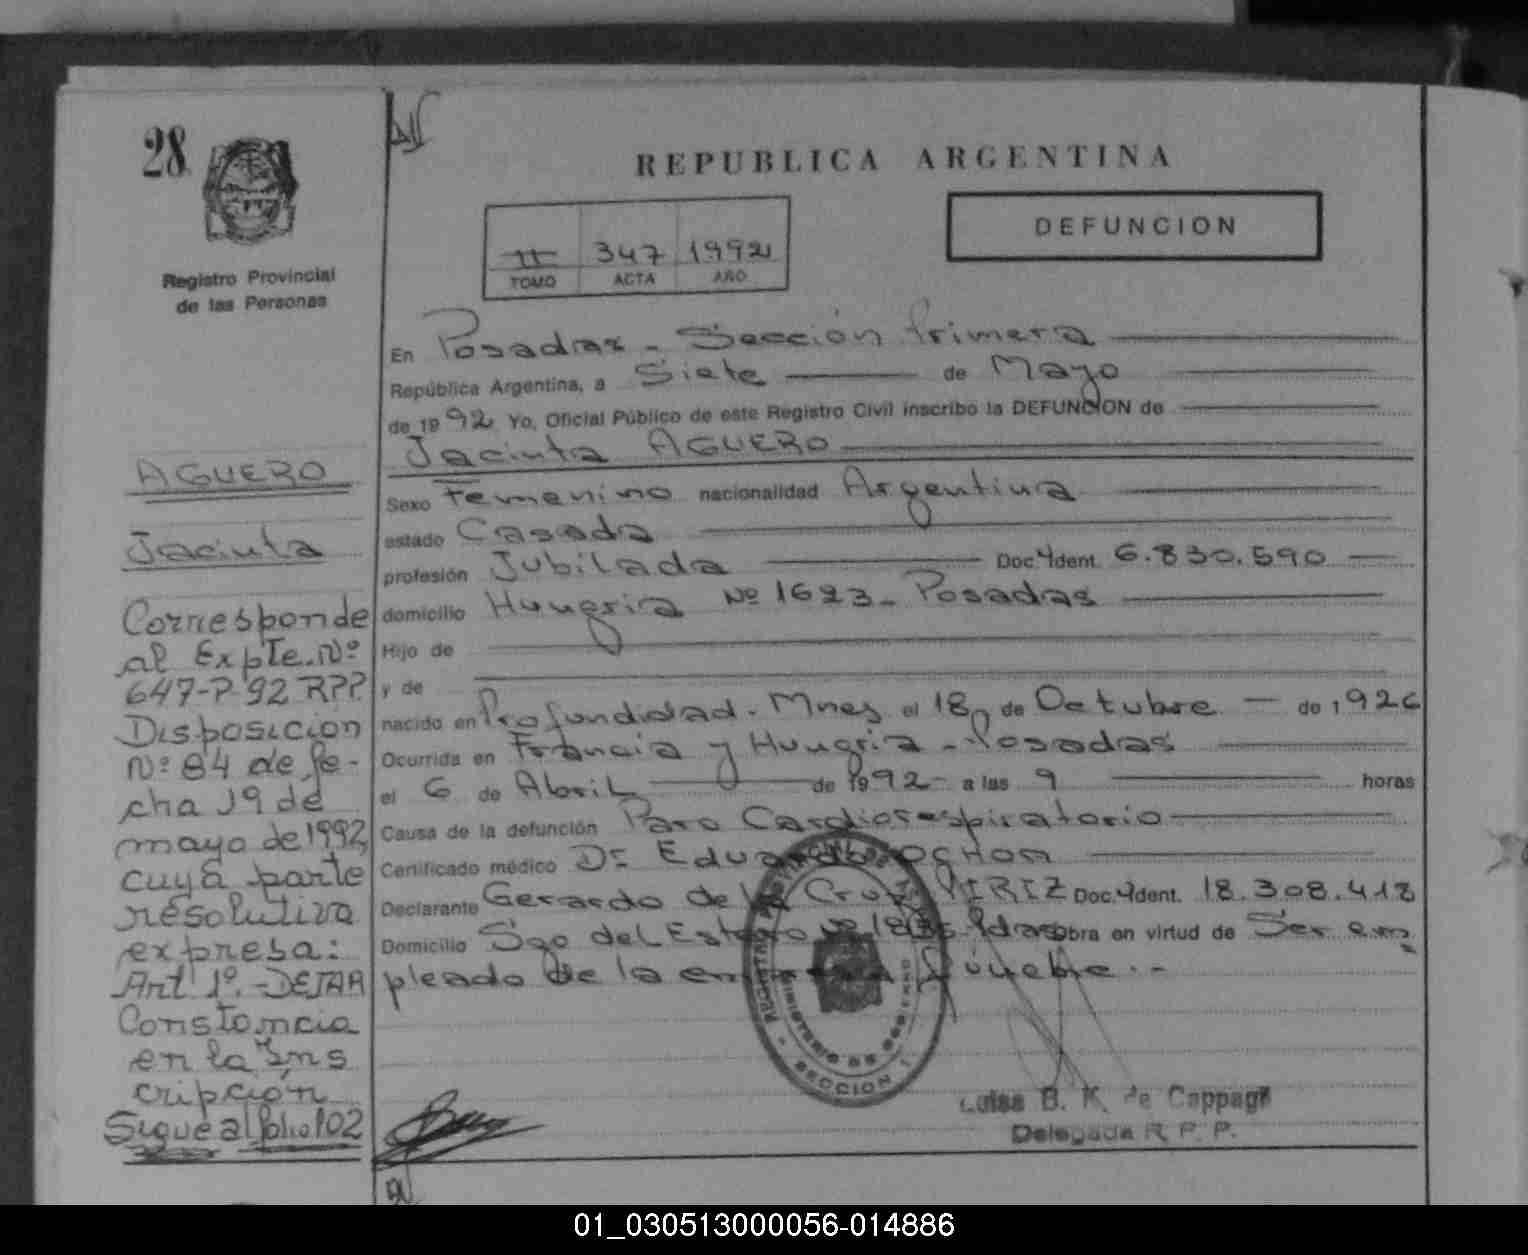 28
Registro Provincial
de las Personas
REPUBLICA ARGENTINA
II 347 1992
TOMO ACTA AÑO
DEFUNCION
En Posadas - Sección Primera
República Argentina, a Siete de Mayo
de 1992 Yo, Oficial Público de este Registro Civil inscribo la DEFUNCION de
Jacinta AGUERO
Sexo Femenino nacionalidad Argentina
estado Casada
profesión Jubilada Doc. Ident. 6.830.590
domicilio Hungria Nº 1623 - Posadas
Hijo de
y de
nacido en Profundidad - Mnes el 18 de Octubre de 1926
Ocurrida en Francia y Hungria - Posadas
el 6 de Abril de 1992 a las 9 horas
Causa de la defunción Paro Cardiorespiratorio
Certificado médico Dr Eduardo OCHOA
Declarante Gerardo de la Cruz PIRIZ Doc. Ident. 18.308.418
Domicilio Sgo del Estero Pdas obra en virtud de Ser em
pleado de la fúnebre.-
MINISTERIO DE GOBIERNO
SECCION 1
Luisa B. K. de Cappagli
Delegada R. P. P.
AGUERO
Jacinta
Corresponde
al Expte. Nº
647-P-92 RPP.
Disposición
Nº 84 de fe-
cha 19 de
mayo de 1992,
cuya parte
resolutiva
expresa:
Art 1º.- DEJAR
Constancia
en la Ins
cripción
Sigue al folio 102
01_030513000056-014886